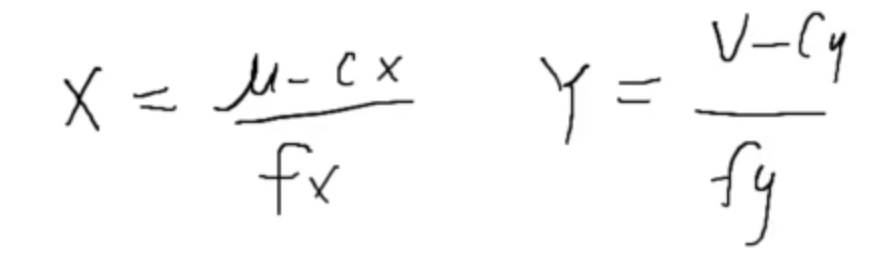 X = \frac{\mu - cx}{fx} Y = \frac{v - cy}{fy}